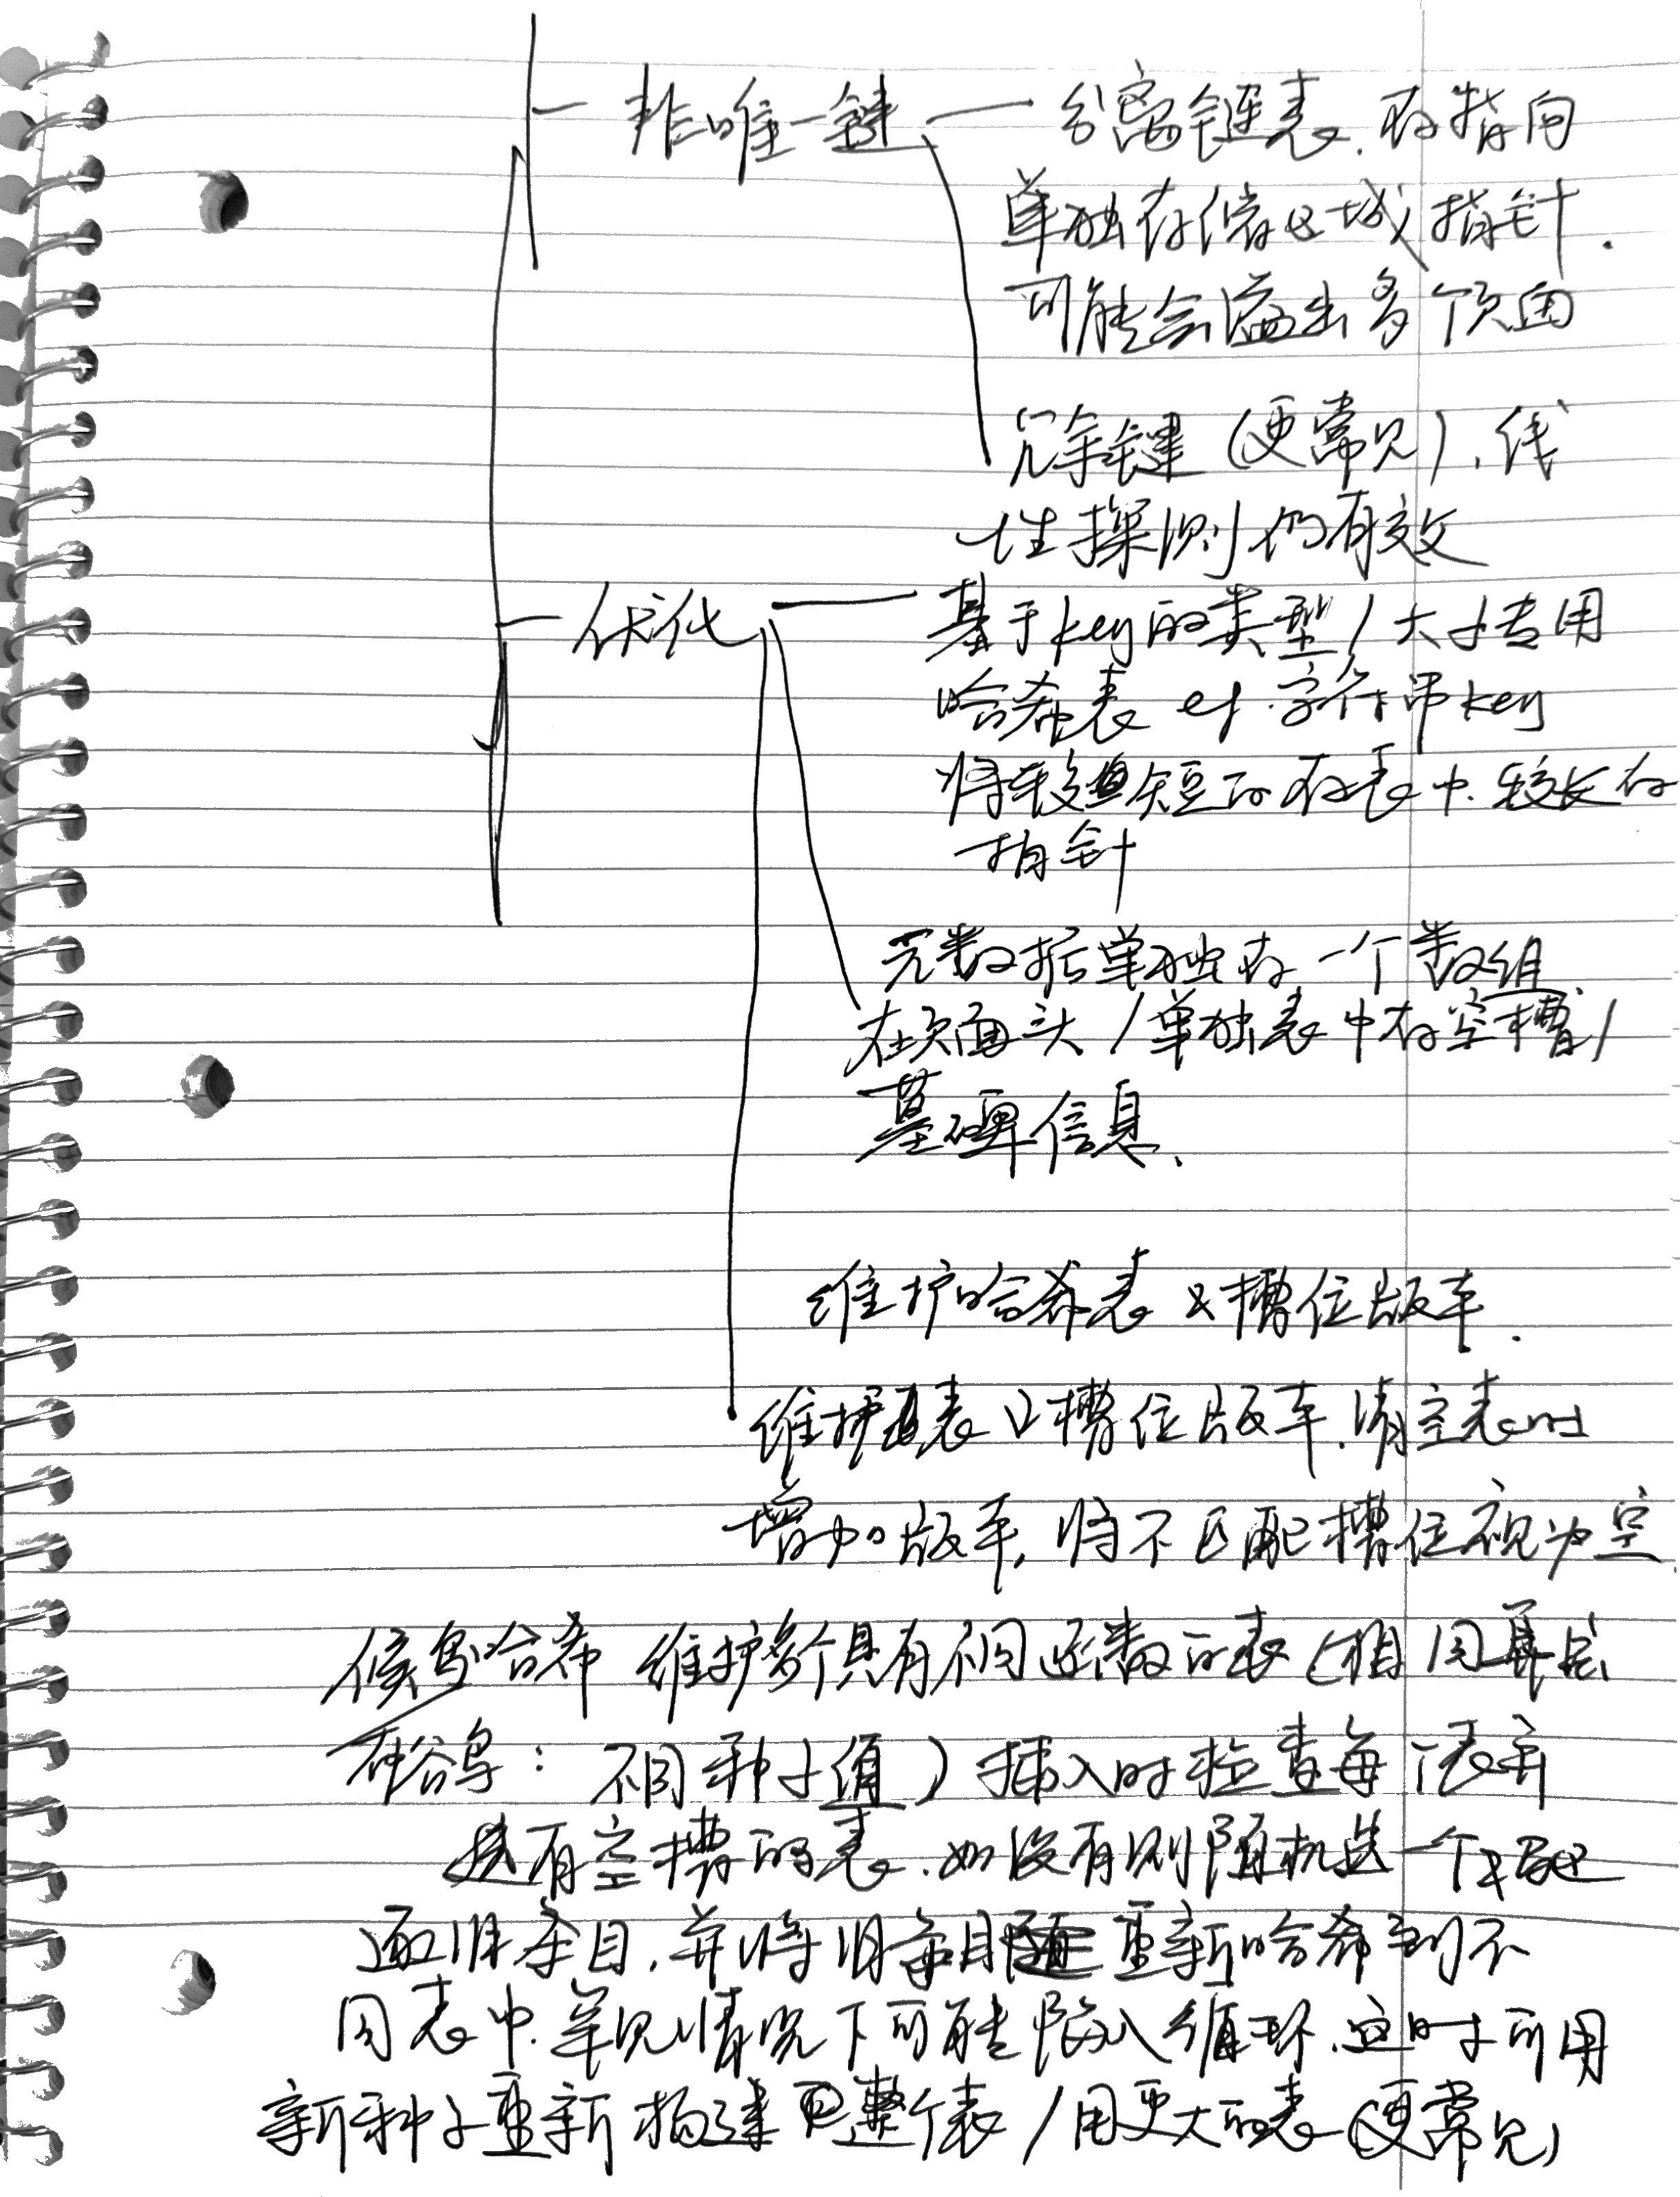 非唯一键 — 分离链表. 存指向
单独存储区域指针.
可能会溢出多个页面
冗余键 (更常见), 线
性探测仍有效
优化 — 基于key的类型/大小专用
哈希表 eg. 字符串key
将较短的存表中. 较长存
指针
元数据单独存一个数组
在页面头/单独表中存空槽/
墓碑信息.
维护哈希表 及槽位版本.
维护表及槽位版本. 清空表
增加版本, 将不匹配槽位视为空.
候鸟哈希 维护多个具有不同函数的表 (相同算法
布谷鸟: 不同种子值) 插入时检查每个表并
选有空槽的表. 如没有则随机选一个 驱
逐旧条目, 并将旧条目重新哈希到不
同表中. 罕见情况下可能陷入循环. 这时可用
新种子重新构建整个表/用更大的表 (更常见)